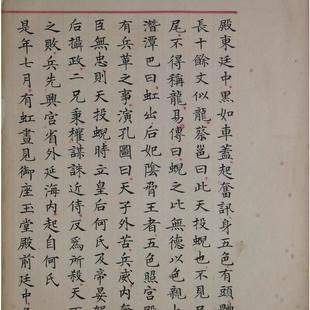 殿東廷中黑如車蓋起奮訊身五色有頭
長十餘丈似龍蔡邕曰此天投蜺也不見
尾不得稱龍易傳曰蜺之比無德以色親
潛潭巴曰虹出后妃陰脅王者五色照宮殿
有兵革之事演孔圖曰天子外苦兵威內奪
臣無忠則天投蜺時立皇后何氏及帝晏駕
后攝政二兄秉權謀誅近侍反為所殺天下
之敗兵先興宮省外延海內起自何氏
是年七月有虹晝見御座玉堂殿前廷中